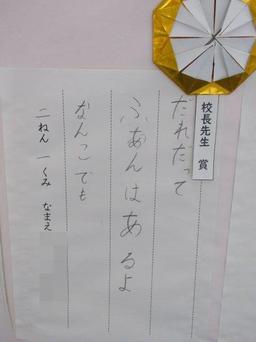 校長先生 賞
だれだって
ふあんはあるよ
なんこでも
二ねん 一くみ なまえ